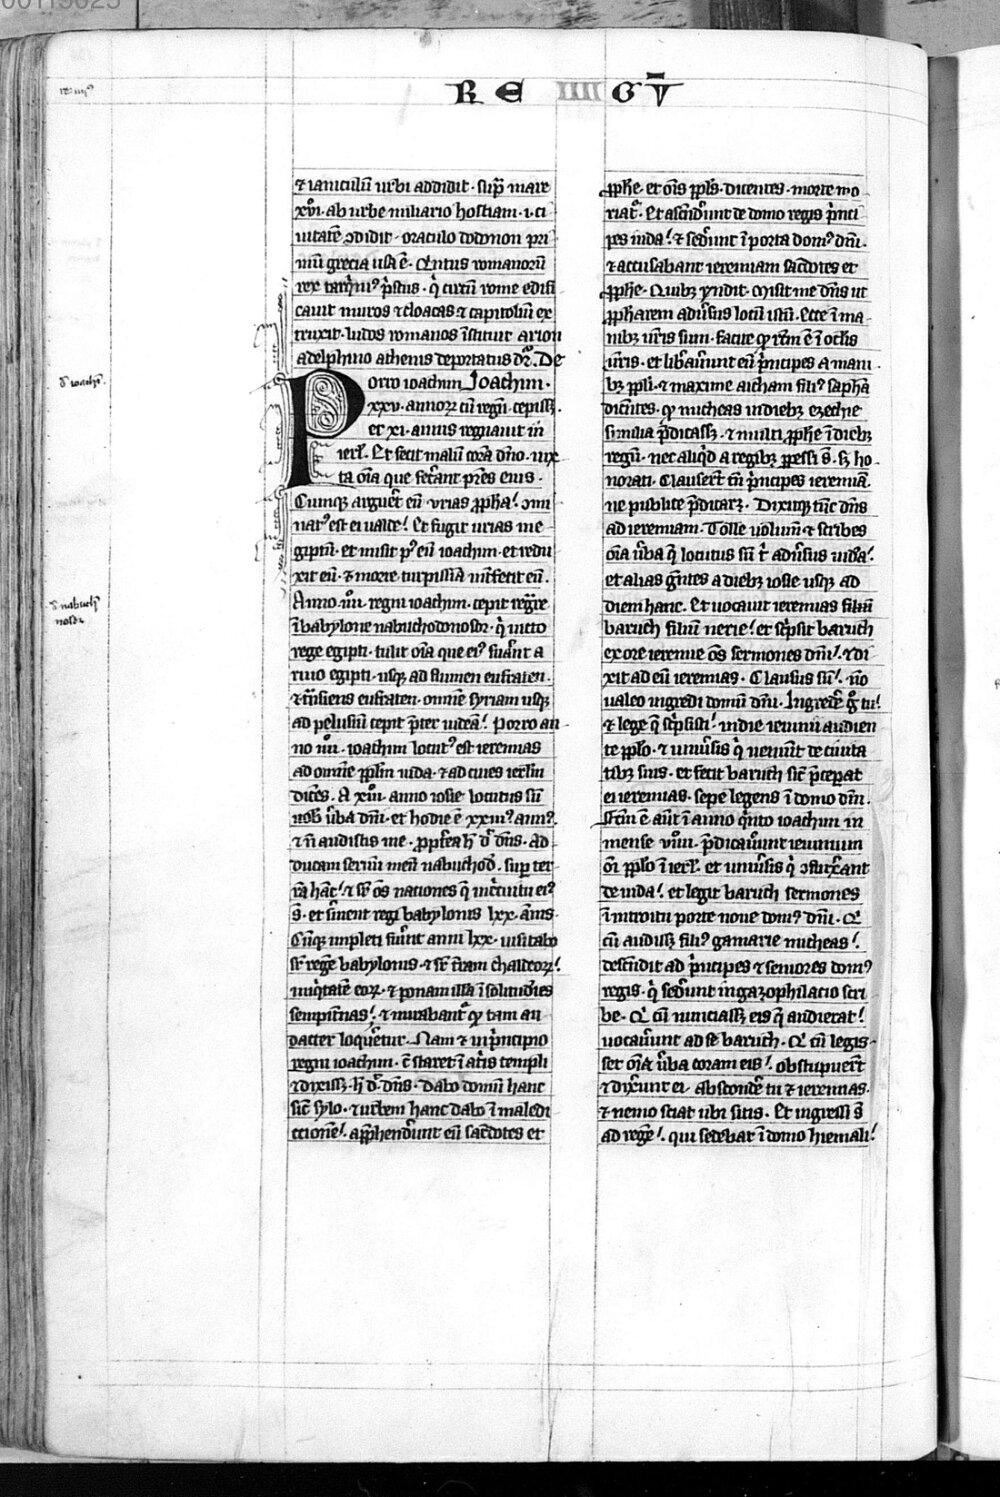 RE IIII GU̅
⁊ ianiculū urbi addidit · sup̄ mare
xvi · ab urbe miliario hostiam · i · ci
uitatē ꝯdidit · oraculo dodonon pri
mū grecia usa ē · Qͥntus romanorū
rex tarqͥniꝰ pͥscus · qͥ circū rome edifi
cauit muros ⁊ cloacas ⁊ capitoliū ex
truxit · ludos romanos īstituit · arion
a delphino athenis deportatus dr̄ · De
Porro ioachim Joachim ·
xxv · annoꝝ cū regn̄ · cepissꝫ ·
et xi · annis regnauit in
ierl̄m · Et fecit malū corā dn̄o · iux
ta oīa que fecant pr̄es eius ·
Cumqꝫ argueret eū · urias ꝓpha · inimi
natꝰ est ei ualde · Et fugit urias in e
giptū · et misit pꝰ eū ioachim · et redu
xit eū · ⁊ morte turpissīa int̄fecit eū ·
Anno · iiii · regni ioachim · cepit reg̅re
ī babylone nabuchodonosor · qͥ uicto
rege egipti · tulit oīa que eiꝰ fuānt a
riuo egipti · usqꝫ ad flumen eufraten ·
⁊ trͣnsiens eufraten · omnē syriam usqꝫ
ad pelusiū cepit p̄ter iudeā · Porro an
no iiii · ioachim locutꝰ est ieremias
ad omnē ppl̄m iuda · ⁊ ad ciues ierl̄m
dicēs · A xiii · anno iosie locutus sū
uob̄ ūba dn̄i · et hodie ē xxiiiꝰ annꝰ ·
⁊ n̄ audistis me · ꝓpt̄ea h̄ dͥ dn̄s · Ad
ducam seruū meū nabuchod̄ · super ter
rā hāc · ⁊ sr̄ oēs nationes q̄ in circuitu eiꝰ
s̄ · et seruient regi babylonis lxx · annis ·
Cūqꝫ impleti fuīnt anni lxx · uisitabo
sr̄ regē babylonis · ⁊ sr̄ t̄ram chaldeoꝝ ·
iniqͥtatē eoꝝ · ⁊ ponam illā ī solitudīes
sempit̄nas · ⁊ mirabant̄ ꝙ tam au
dacter loqueretur · Nam ⁊ in pͥncipio
regni ioachim · cū staret ī at̄is templi
⁊ dixissꝫ · h̄ dͥ dn̄s · Dabo domū hanc
sic̄ sylo · ⁊ urbem hanc dabo ī maledi
ctionē · app̄hendūnt eū sac̄dotes et
ꝓphe · et oīs ppl̄s · dicentes · morte mo
riat̄ · Et ascendūnt de domo regis pͥnci
pes iuda · ⁊ sedūnt ī porta domꝰ dn̄i ·
⁊ accusabant ieremiam sac̄dotes et
ꝓphe · Quibꝫ rn̄dit · Misit me dn̄s ut
ꝓpharem adūsus locū istū · Ecce ī ma
nibꝫ ur̄is sum · facite ꝙ rc̄m ē ī oclis
ur̄is · et libāunt eū pͥncipes a mani
bꝫ ppl̄i · ⁊ maxime aicham filiꝰ saphā
dicentes · ꝙ micheas in diebꝫ ezechie
similia p̄dicassꝫ · ⁊ multi ꝓphe ī diebꝫ
regū · nec aliqͥd a regibꝫ ꝑpessi s̄ · sꝫ ho
norati · Clauserūt tn̄ pͥncipes ieremiā ·
ne publice p̄dicaret · Dixitqꝫ tūc dn̄s
ad ieremiam · Tolle uolum̄ ⁊ scribes
oīa ūba q̄ locutus sū t̄ adūsus iuda ·
et alias gentes a diebꝫ iosie usqꝫ ad
diem hanc · Et uocauit ieremias filiū
baruch filiū nerie · et scͥpsit baruch
ex ore ieremie oēs sermones dn̄i · ⁊ di
xit ad eū ieremias · Clausus sū · nō
ualeo ingredi domū dn̄i · Ingredere gͦ tu ·
⁊ lege q̄ scͥpsisti · in die ieiunii audien
te ppl̄o · ⁊ uniūsis qͥ ueniūt de ciuita
tibꝫ suis · et fecit baruch sic̄ p̄ceperat
ei ieremias · sepe legens ī domo dn̄i ·
Fc̄m ē aūt ī anno qͥnto ioachim in
mense viiii · p̄dicauūnt ieiunium
om̄i ppl̄o ī ierl̄m · et uniūsis qͥ ꝯfluxānt
de iuda · et legit baruch sermones
ī introitu porte noue domꝰ dn̄i · Q̄
cū audissꝫ filiꝰ gamarie micheas ·
descendit ad pͥncipes ⁊ seniores domꝰ
regis · qͥ sedūnt in gazophilacio scri
be · Q̄ cū nunciassꝫ eis q̄ audierat ·
uocaūnt ad se baruch · Q̄ cū legis
set oīa ūba coram eis · obstupuerūt
⁊ dixūnt ei · abscondere tu ⁊ ieremias ·
⁊ nemo sciat ubi sitis · Et ingressi s̄
ad regē · qui sedebat ī domo hiemali ·